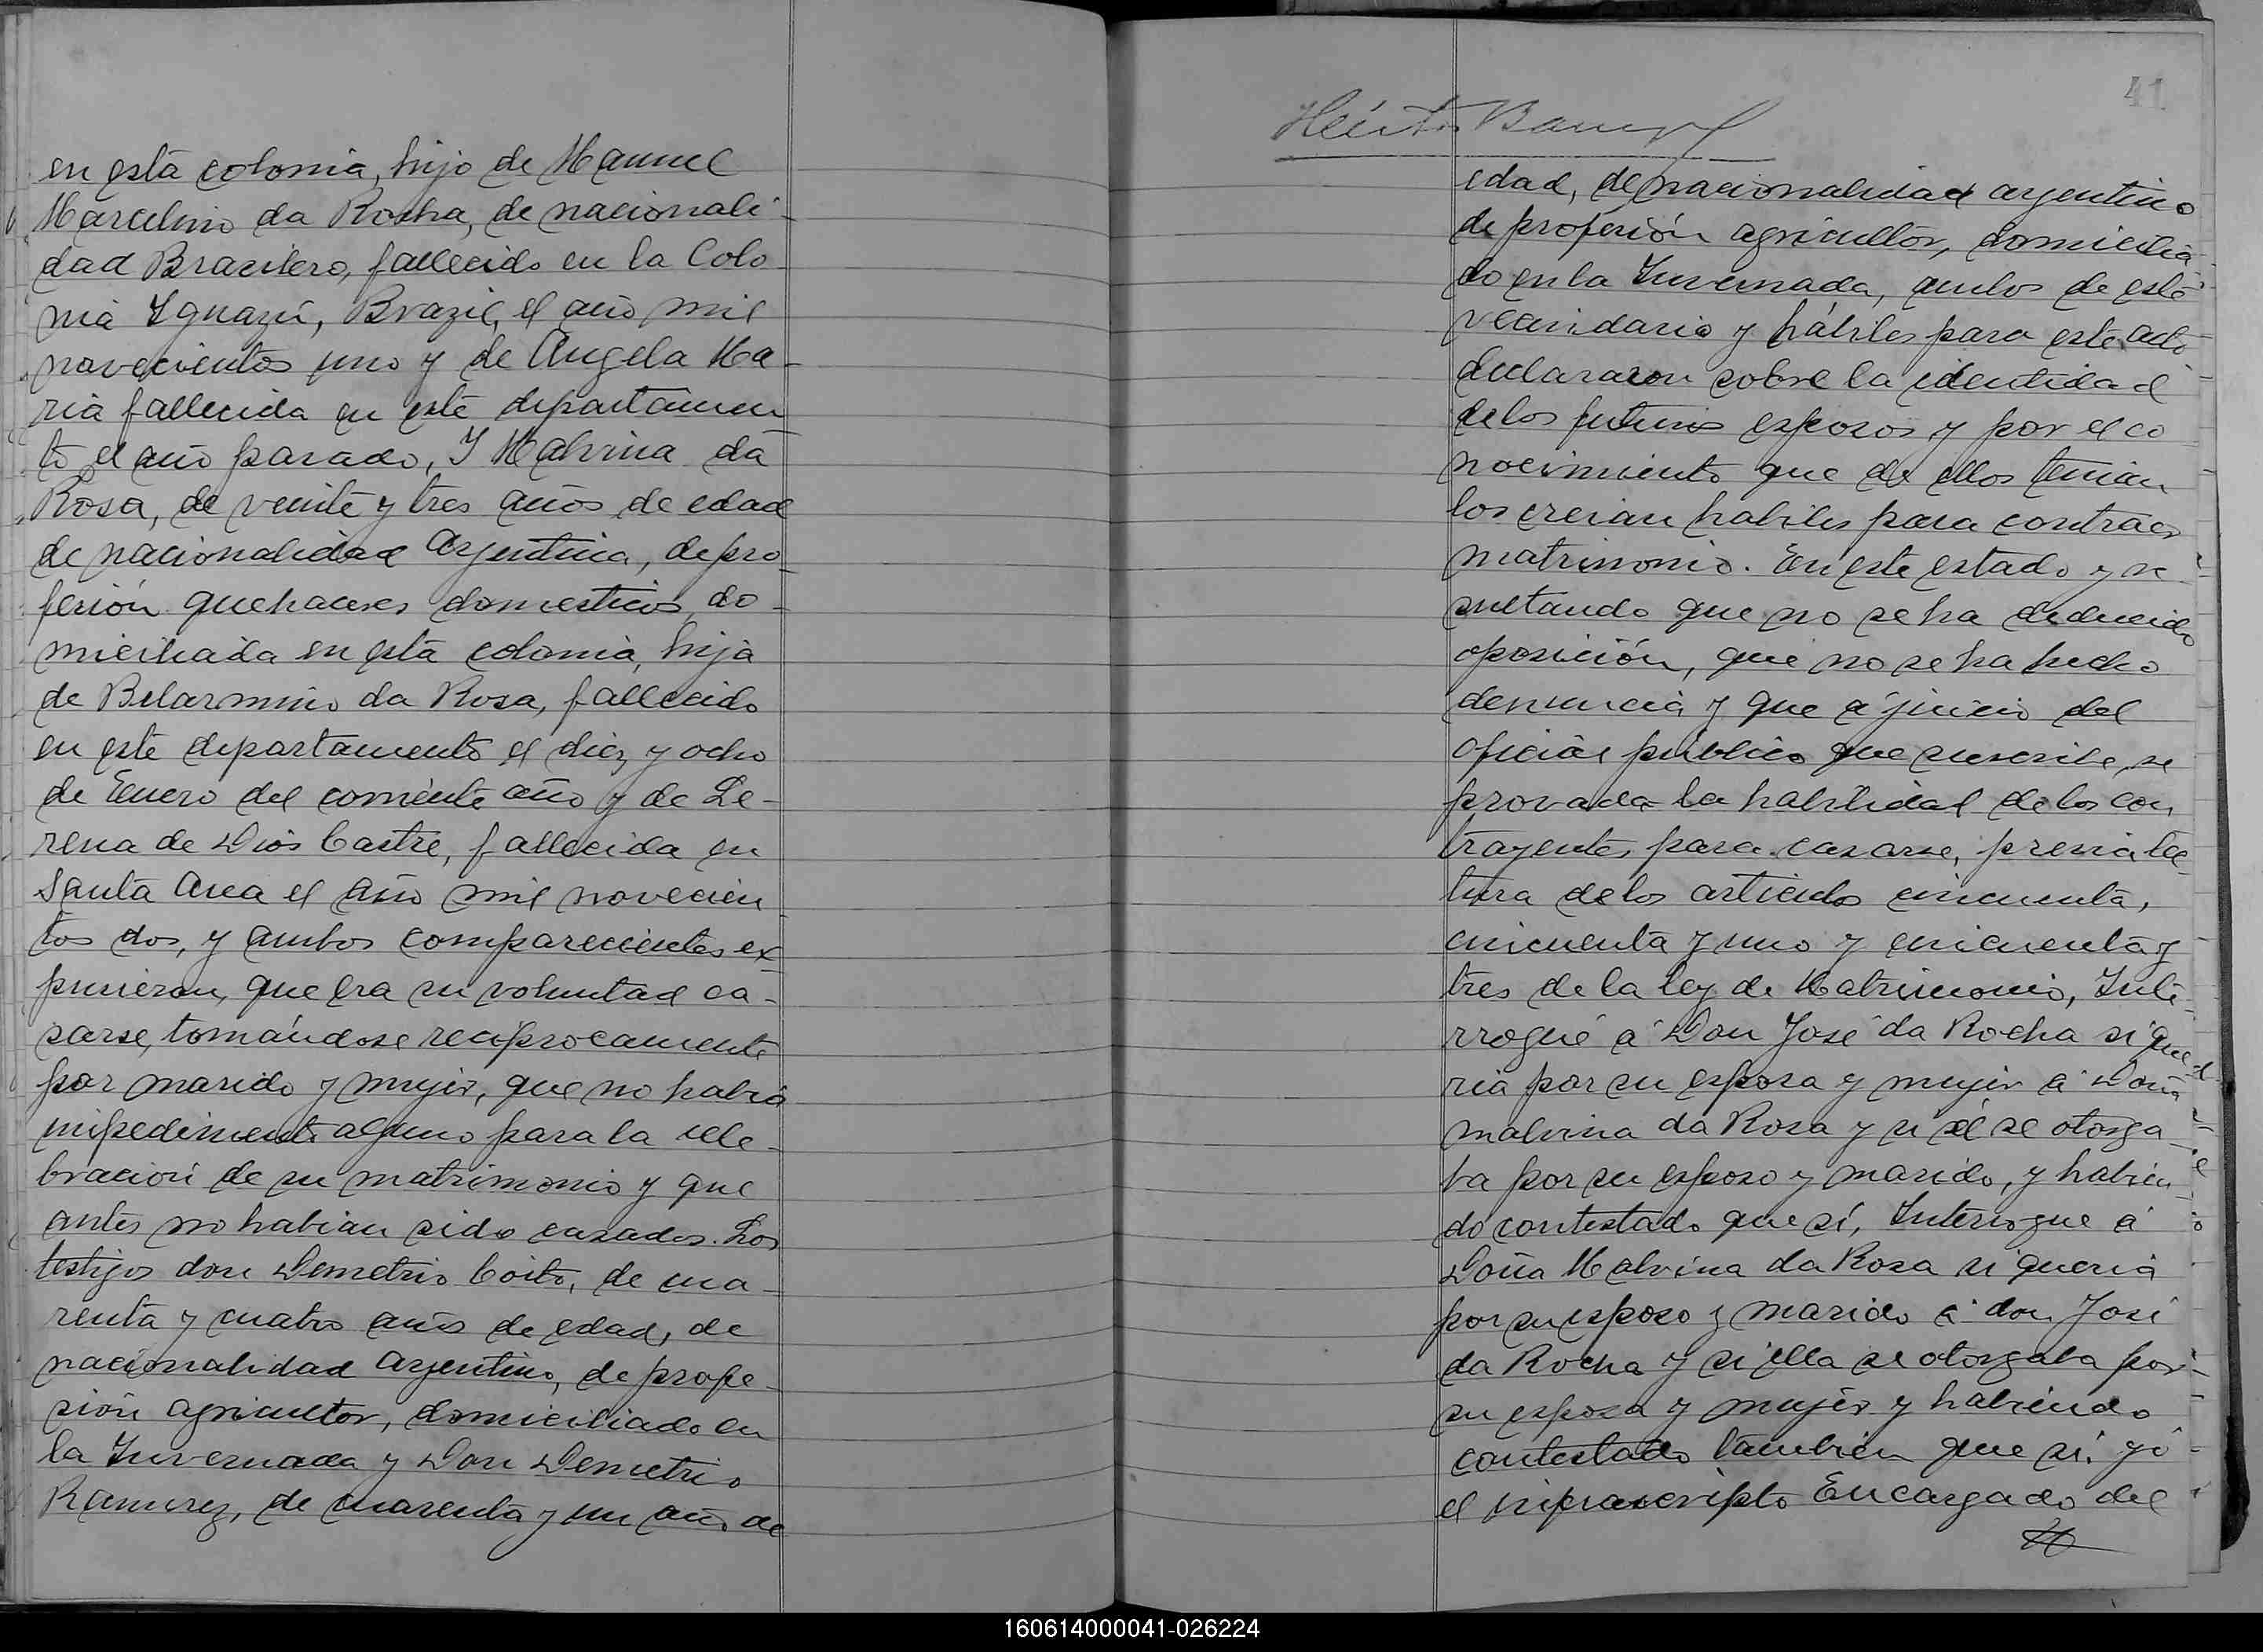 en esta colonia, hijo de Manuel
Marcelino da Rocha, de nacionali-
dad Brazilero, fallecido en la Colo-
nia Yguazú, Brazil, el año mil
novecientos uno y de Angela Ma-
ria fallecida en este departamen
to el año pasado, Y Malvina da
Rosa, de veinte y tres años de edad
de nacionalidad Argentina, de pro-
fesión quehaceres domesticos, do-
miciliada en esta colonia, hija
de Belarmino da Rosa, fallecido
en este departamento el diez y ocho
de Enero del corriente año y de Le-
rena de Dios Castre, fallecida en
Santa Ana el año mil novecien
tos dos, y ambos comparecientes ex-
pusieron, que era su voluntad ca-
sarse, tomándose recíprocamente
por marido y mujer, que no habia
impedimento alguno para la cele-
bración de su matrimonio y que
antes no habian sido casados. Los
testigos don Demetrio Coito, de cua-
renta y cuatro años de edad, de
nacionalidad Argentino, de profe-
sión agricultor, domiciliado en
la Invernada y Don Demetrio
Ramirez, de cuarenta y un año de
41
Héctor
edad, de nacionalidad argentino
de profesión agricultor, domicilia-
do en la Invernada, ambos de este
vecindario y hábiles para este acto
declararon sobre la identidad
de los futuros esposos y por el co
nocimiento que de ellos tenian
los creian habiles para contraer
matrimonio. En este estado y re
sultando que no se ha deducido
oposición, que no se ha hecho
denuncia y que á juicio del
oficial público que suscribe, se
provada la habilidad de los con
trayentes para casarse, previa lec
tura de los articulos cincuenta,
cincuenta y uno y cincuenta y
tres de la ley de Matrimonio, Inte-
rrogué á Don José da Rocha si que
ria por su esposa y mujer á Doña
malvina da Rosa y si él se otorga-
ba por su esposo y marido, y habien-
do contestado que sí, Interrogue á
Doña Malvina da Rosa si queria
por su esposo y marido á don José
da Rocha y si ella se otorgaba por
su esposa y mujer y habiendo
contestado tambien que sí. yó
el infrascripto Encargado del